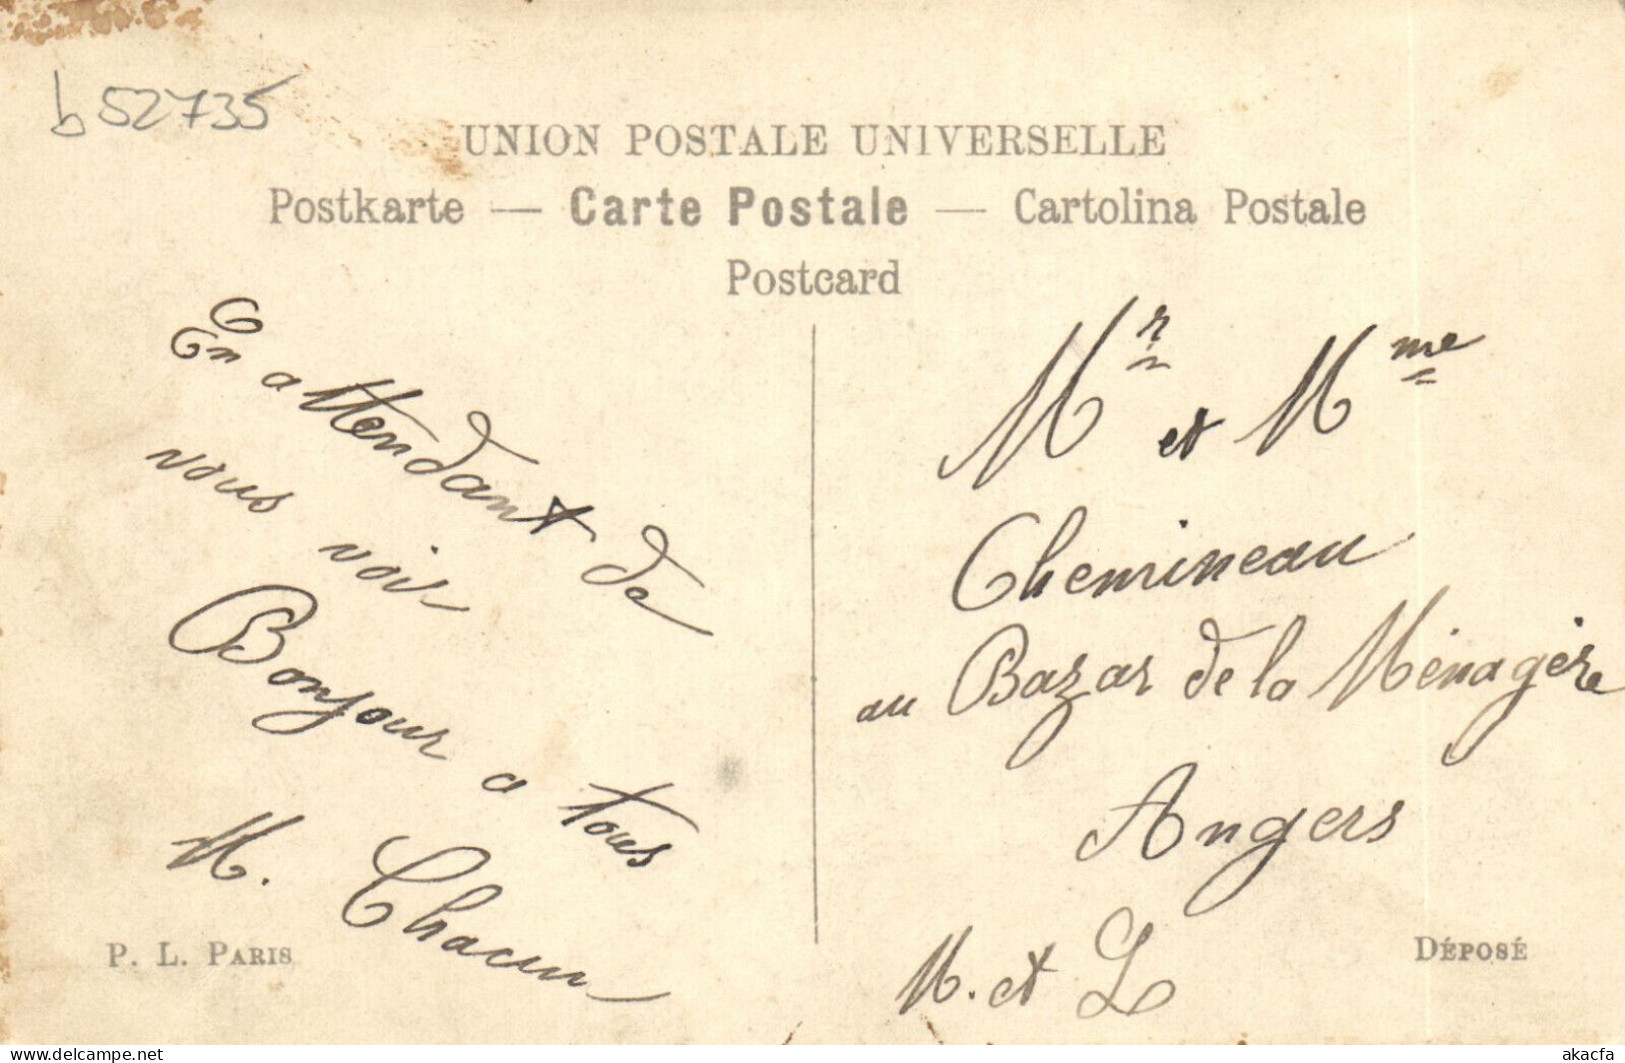 b 52735
UNION POSTALE UNIVERSELLE
Postkarte — Carte Postale — Cartolina Postale
Postcard
En attendant de
vous voir
Bonjour a tous
M. Chacun
P. L. PARIS
Mr et Mme
Chemineau
au Bazar de la Ménagère
Angers
M. et L
DÉPOSÉ
delcampe.net
akacfa